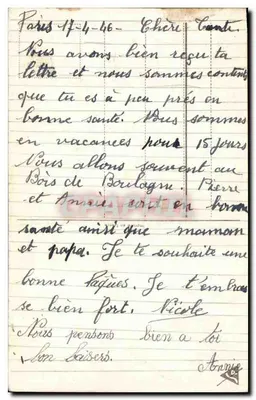 Paris 17-4-46 - Chère Tante
Nous avons bien reçu ta
lettre et nous sommes contents
que tu es à peu prés en
bonne santé. Nous sommes
en vacances pour 15 jours
Nous allons souvent au
Bois de Boulogne. Pierre
et Annie sont en bonne
santé ainsi que maman
et papa. Je te souhaite une
bonne Pâques. Je t'embras
se bien fort. Nicole
Nous pensons bien a toi
bon baisers.
Annie